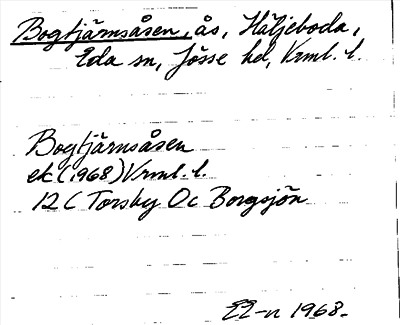 Bogtjärnsåsen, ås, Häljeboda,
Eda sn, Jösse hd, Vrml. l.
Bogtjärnsåsen
ek (1968) Vrml. l.
12 C Torsby 0c Borgsjön
EL-n 1968.